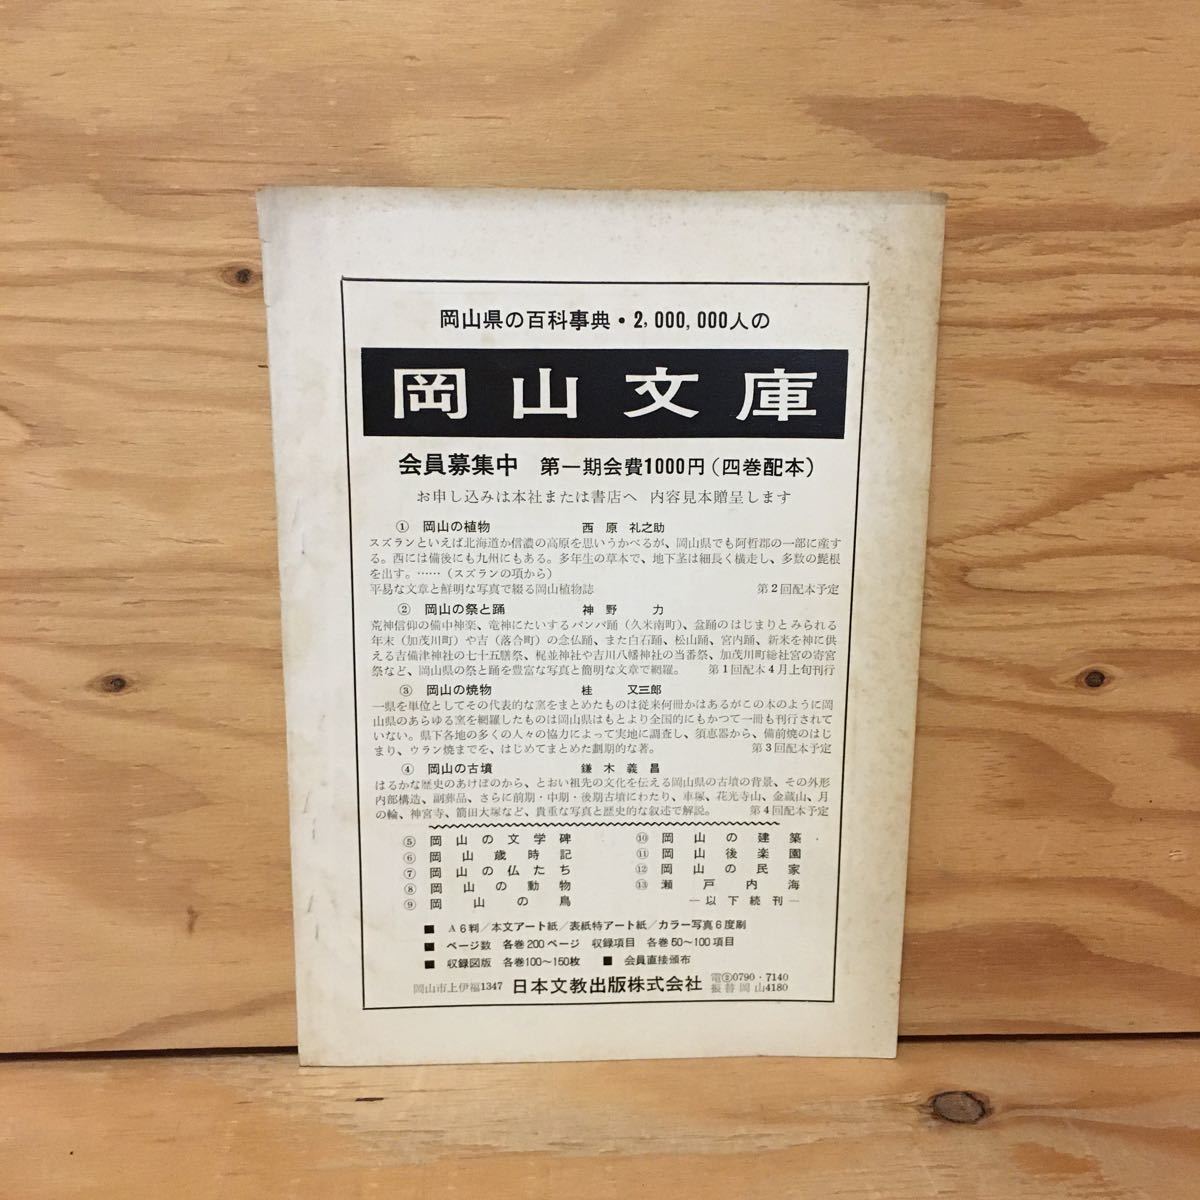 岡山県の百科事典・2,000,000人の
岡山文庫
会員募集中 第一期会費1000円(四巻配本)
お申し込みは本社または書店へ 内容見本贈呈します
① 岡山の植物 西原礼之助
スズランといえば北海道か信濃の高原を思いうかべるが、岡山県でも阿哲郡の一部に産す
る。西には備後にも九州にもある。多年生の草本で、地下茎は細長く横走し、多数の髭根
を出す。……(スズランの項から)
平易な文章と鮮明な写真で綴る岡山植物誌 第2回配本予定
② 岡山の祭と踊 神野力
荒神信仰の備中神楽、竜神にたいするバンバ踊(久米南町)、盆踊のはじまりとみられる
年末(加茂川町)や吉(落合町)の念仏踊、また白石踊、松山踊、宮内踊、新米を神に供
える吉備津神社の七十五膳祭、梶並神社や吉川八幡神社の当番祭、加茂川町総社宮の寄宮
祭など、岡山県の祭と踊を豊富な写真と簡明な文章で網羅。 第1回配本4月上旬刊行
③ 岡山の焼物 桂又三郎
一県を単位としてその代表的な窯をまとめたものは従来何冊かはあるがこの本のように岡
山県のあらゆる窯を網羅したものは岡山県はもとより全国的にもかつて一冊も刊行されて
いない。県下各地の多くの人々の協力によって実地に調査し、須恵器から、備前焼のはじ
まり、ウラン焼までを、はじめてまとめた劃期的な著。 第3回配本予定
④ 岡山の古墳 鎌木義昌
はるかな歴史のあけぼのから、とおい祖先の文化を伝える岡山県の古墳の背景、その外形
内部構造、副葬品、さらに前期・中期・後期古墳にわたり、車塚、花光寺山、金蔵山、月
の輪、神宮寺、箭田大塚など、貴重な写真と歴史的な叙述で解説。 第4回配本予定
⑤ 岡山の文学碑
⑥ 岡山歳時記
⑦ 岡山の仏たち
⑧ 岡山の動物
⑨ 岡山の鳥
⑩ 岡山の建築
⑪ 岡山後楽園
⑫ 岡山の民家
⑬ 瀬戸内海
―以下続刊―
■ A6判/本文アート紙/表紙特アート紙/カラー写真6度刷
■ ページ数 各巻200ページ 収録項目 各巻50〜100項目
■ 収録図版 各巻100〜150枚 ■ 会員直接頒布
岡山市上伊福1347 日本文教出版株式会社 電②0790・7140
振替岡山4180